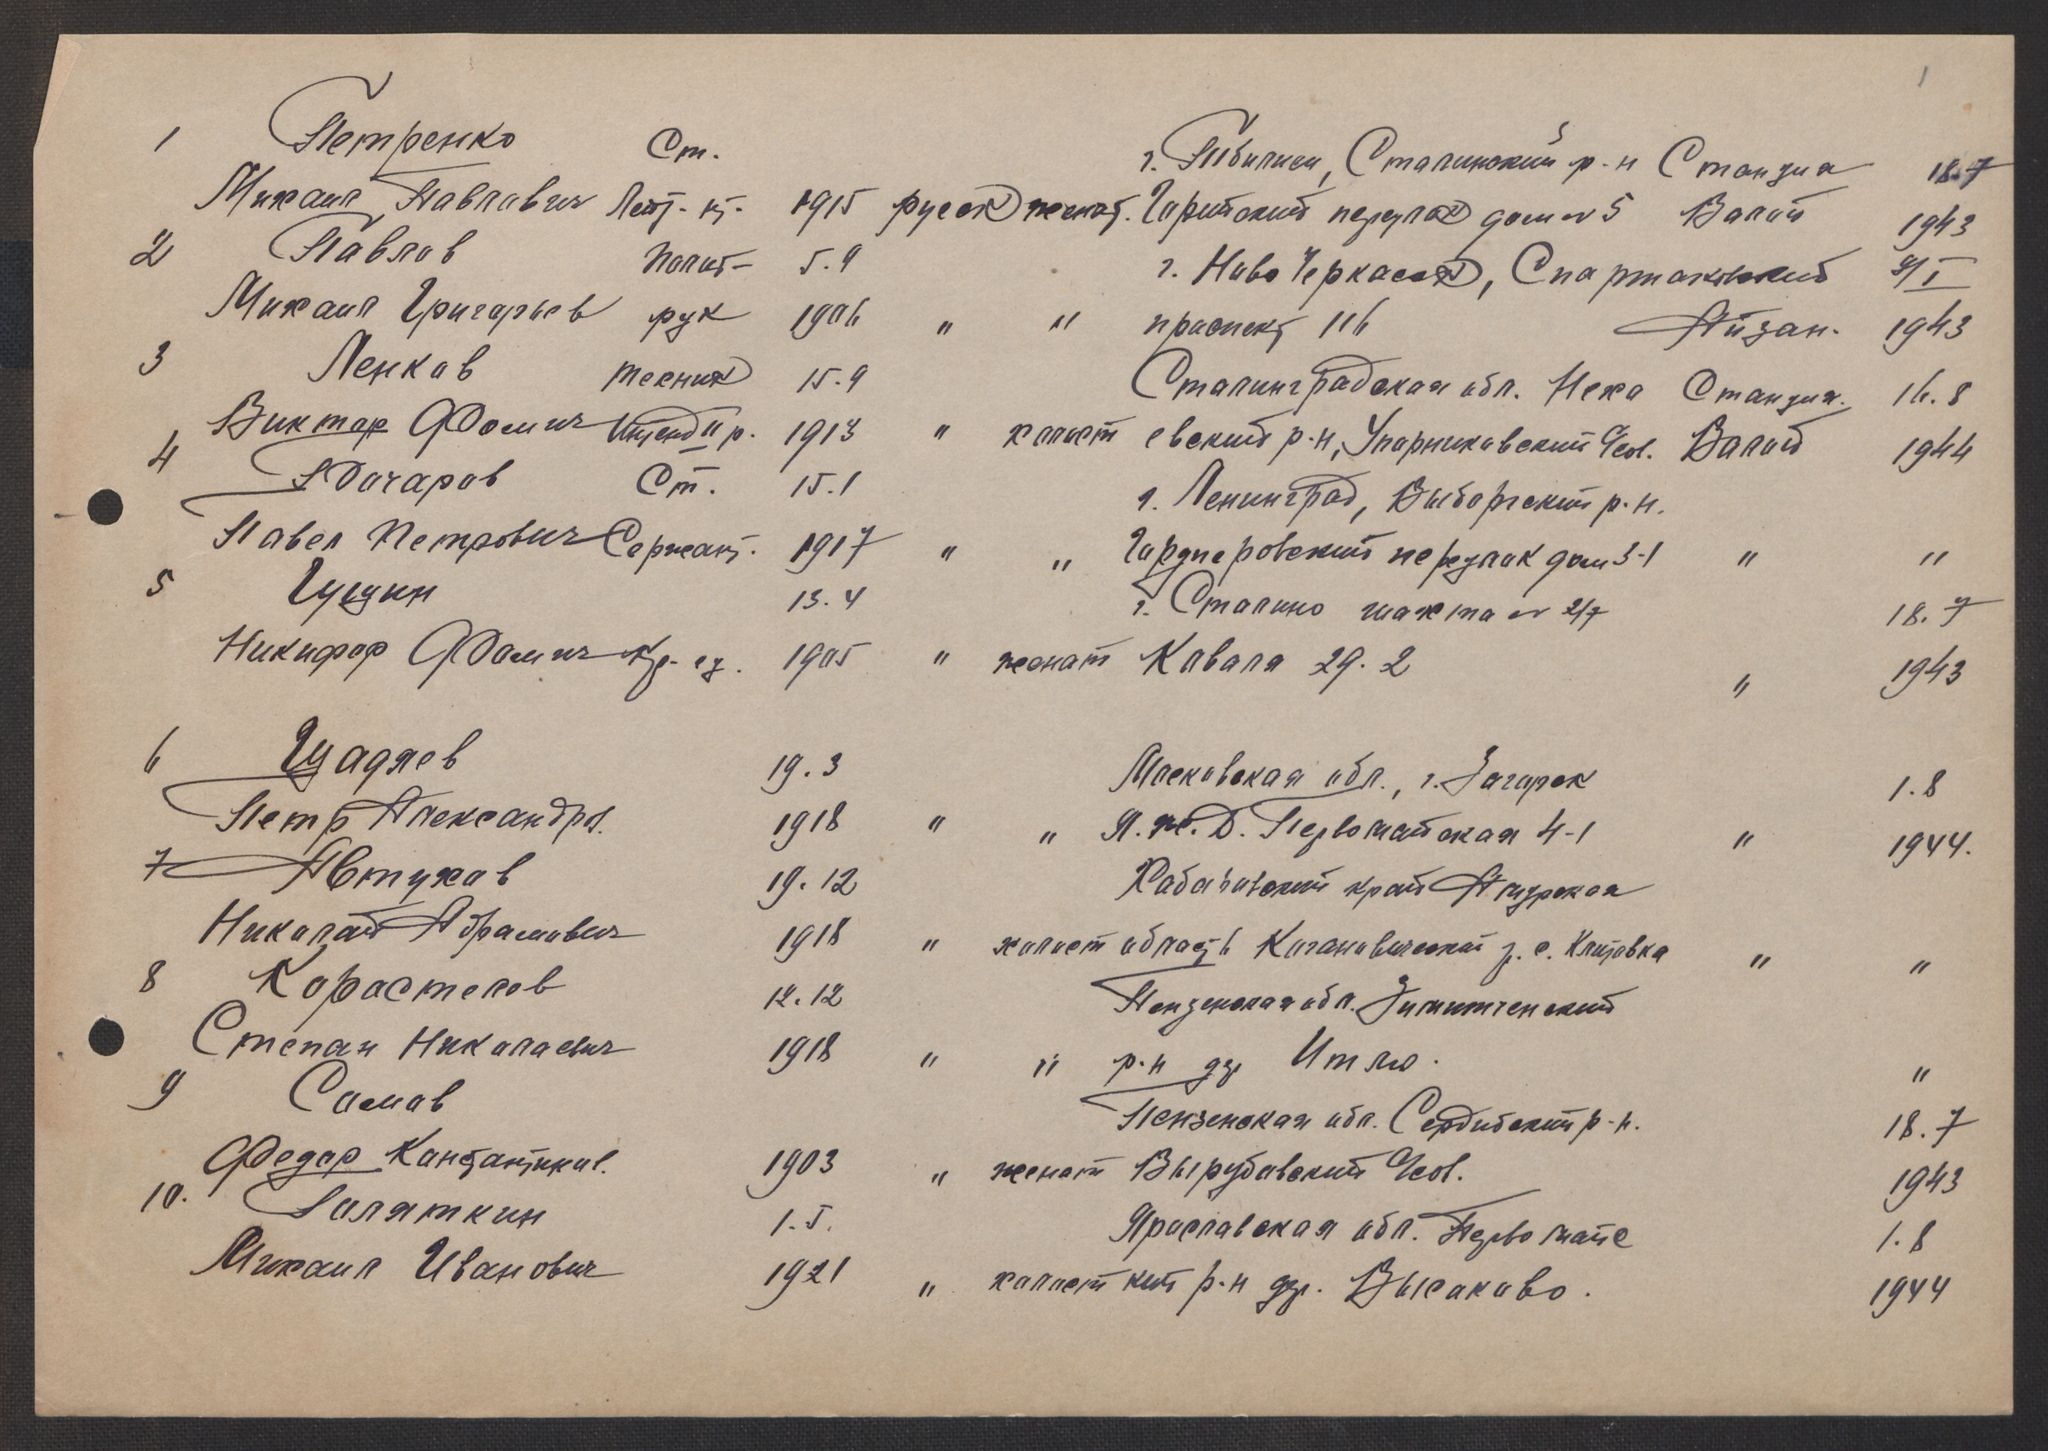 1
1 Петренко Ст. г. Тбилиси, Сталинский р-н Станция 18.7
Михаил Павлович Лейт-нт. 1915 русск женат. Горийский переулок дом №5 Валой 1943
2 Павлов Полит- 5.9 г. Ново Черкасск, Спартаковский 9/I
Михаил Григорьев рук 1906 " " проспект 116 Айзан. 1943
3 Ленков техник 15.9 Сталинградская обл. Неха Станция. 16.8
Виктор Фомич Интенд II р. 1913 " холост евский р-н, Упорниковский Чсов. Валой 1944
4 Ст. 15.1 г. Ленинград, Выборгский р-н.
Павел Петрович Сержант. 1917 " " переулок дом 3-1 " "
5 Гущин 13.4 г. Сталино шахта № 2/7 18.7
Никифор Фомич Кр-ец. 1905 " женат Коваля 29.2 " 1943
6 Щадяев 19.3 Московская обл., г. Загорск 1.8
Петр Александров. 1918 " " Я.Ж.Д. Первомайская 4-1 " 1944.
7 Автухов 19.12 край Амурская
Николай Абрамович 1918 " холост область Кагановический р. с. " "
8 Коростелов 12.12 Пензенская обл.
Степан Николаевич 1918 " " р-н дер "
9 Сомов Пензенская обл. Сердобский р-н. 18.7
Федор Константинов. 1903 " женат Вырубовский Чсов. 1943
10. Заляткин 1.5. Ярославская обл. Первомайс 1.8
Михаил Иванович 1921 " холост кий р-н дер. Высоково. 1944